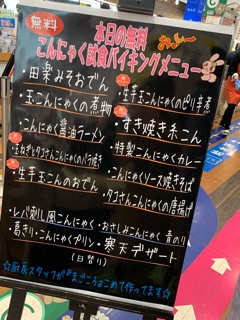 無料
本日の無料
こんにゃく試食バイキングメニュー
・田楽みそおでん
・玉こんにゃくの煮物
・こんにゃく醤油ラーメン
・玉ねぎとタコさんこんにゃくのバラ焼き
・生芋玉こんにゃくのおでん
・生芋玉こんにゃくのピリ辛煮
・すき焼き糸こん
・特製こんにゃくカレー
・こんにゃくソース焼きそば
・タコさんこんにゃくの唐揚げ
・レバ刺し風こんにゃく・おさしみこんにゃく青のり
・葛きり・こんにゃくプリン・寒天デザート
(日替り)
☆厨房スタッフがまごころこめて作ってます☆